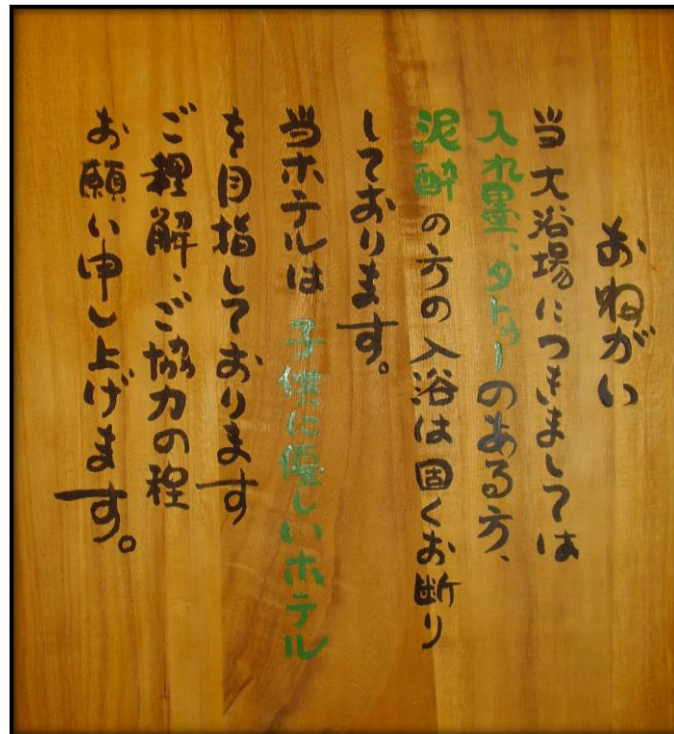 おねがい
当大浴場につきましては
入れ墨、タトゥーのある方、
泥酔の方の入浴は固くお断り
しております。
当ホテルは子供に優しいホテル
を目指しております
ご理解、ご協力の程
お願い申し上げます。